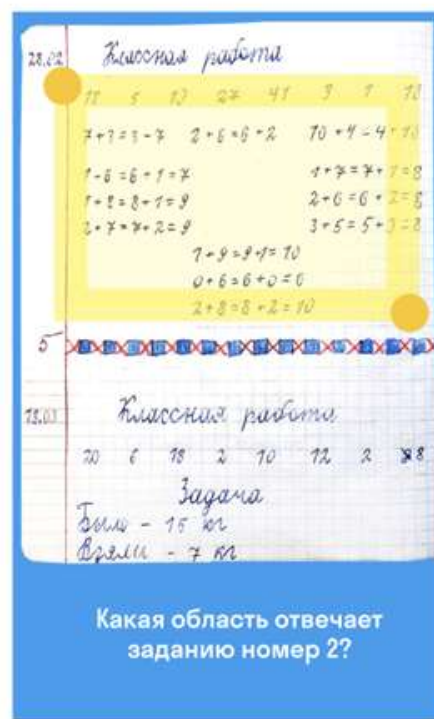 28.02 Классная работа
18 5 13 27 41 3 1 10
7+3=3+7 2+6=6+2 10+4=4+10
1+6=6+1=7 1+7=7+1=8
1+8=8+1=9 2+6=6+2=8
2+7=7+2=9 3+5=5+3=8
1+9=9+1=10
0+6=6+0=6
2+8=8+2=10
5
13.03 Классная работа
20 6 18 2 10 12 2 8
Задача
Было - 15 кг
Взяли - 7 кг
Какая область отвечает
заданию номер 2?